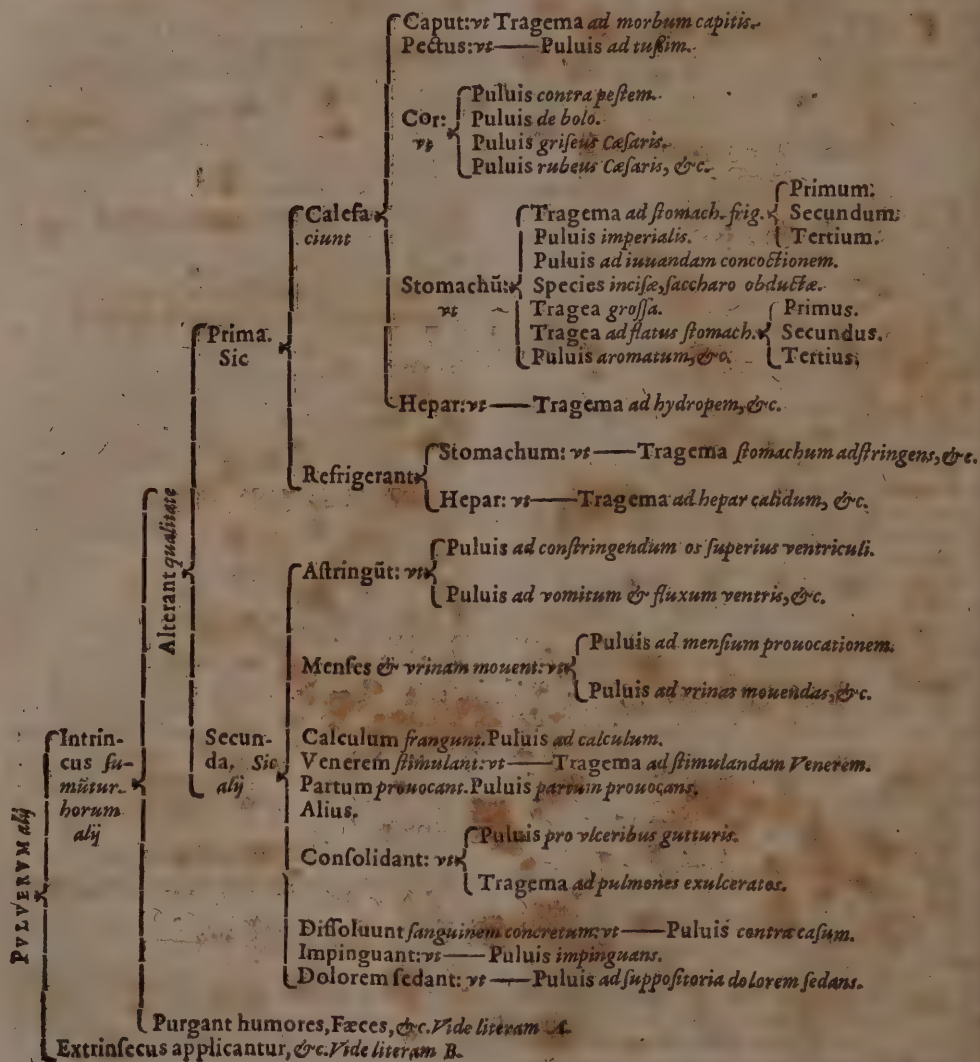 Caput: vt Tragema ad morbum capitis.
Pectus: vt — Puluis ad tußim.
Cor: vt
Puluis contra peſtem.
Puluis de bolo.
Puluis griſeus Cæſaris.
Puluis rubeus Cæſaris, &c.
Calefa
ciunt
Stomachũ: vt
Tragema ad ſtomach. frig.
Primum:
Secundum:
Tertium.
Puluis imperialis.
Puluis ad iuuandam concoctionem.
Species inciſæ, ſaccharo obductæ.
Tragea groſſa.
Tragea ad flatus ſtomach.
Primus.
Secundus.
Tertius,
Puluis aromatum, &c.
Hepar: vt — Tragema ad hydropem, &c.
Prima.
Sic
Refrigerant
Stomachum: vt — Tragema ſtomachum adſtringens, &c.
Hepar: vt — Tragema ad hepar calidum, &c.
Alterant qualitate
Aſtringũt: vt
Puluis ad conſtringendum os ſuperius ventriculi.
Puluis ad vomitum & fluxum ventris, &c.
Menſes & vrinam mouent: vt
Puluis ad menſium prouocationem.
Puluis ad vrinas mouendas, &c.
Secun-
da, Sic
alij
Calculum frangunt. Puluis ad calculum.
Venerem ſtimulant: vt — Tragema ad ſtimulandam Venerem.
Partum prouocant. Puluis partum prouocans.
Alius.
Conſolidant: vt
Puluis pro vlceribus gutturis.
Tragema ad pulmones exulceratos.
Diſſoluunt ſanguinem concretum: vt — Puluis contra caſum.
Impinguant: vt — Puluis impinguans.
Dolorem ſedant: vt — Puluis ad ſuppoſitoria dolorem ſedans.
PVLVERVM alij
Intrin-
cus ſu-
mũtur
horum
alij
Purgant humores, Fæces, &c. Vide literam A.
Extrinſecus applicantur, &c. Vide literam B.